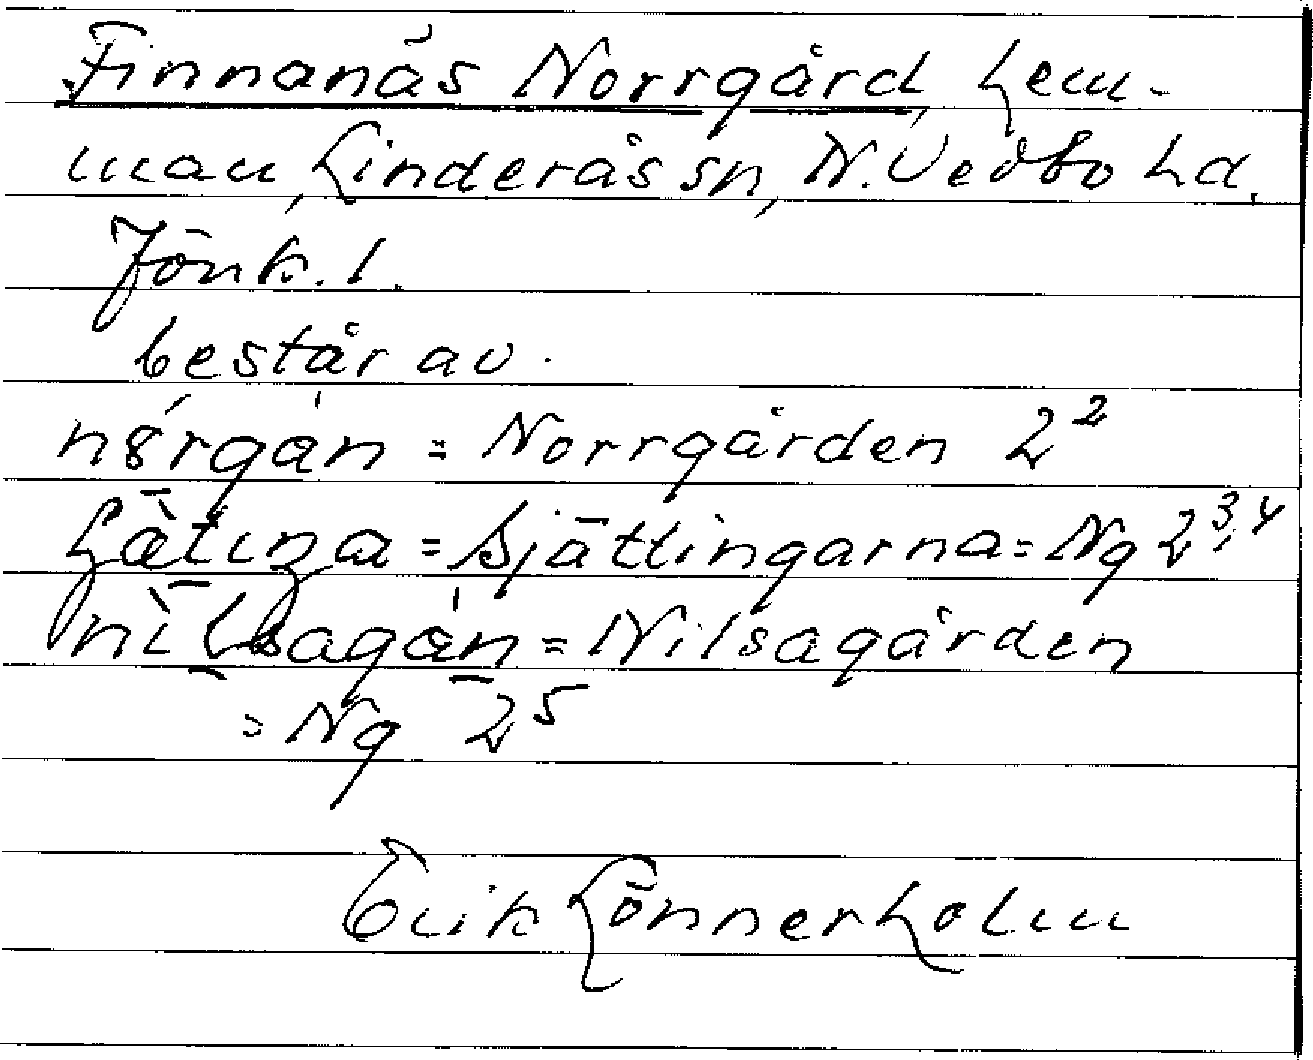 Finnanäs Norrgård, hem-
man, Linderås sn, N. Vedbo hd.
Jönk. l.
består av.
= Norrgården 2²
= Sjättingarna = Ng 2³,⁴
= Nilsagården
= Ng 2⁵
Erik Lönnerholm